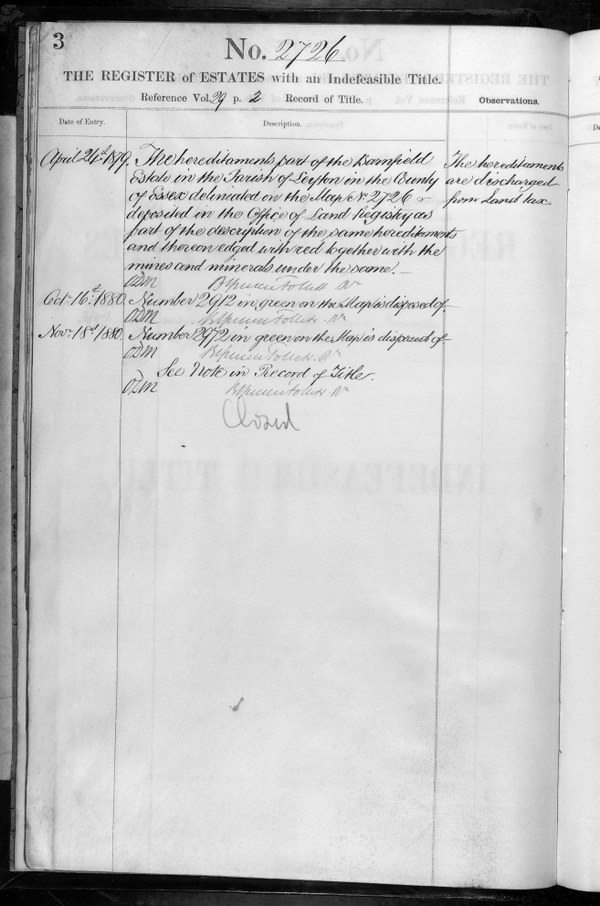 3
No. 2726
THE REGISTER of ESTATES with an Indefeasible Title.
Reference Vol. 29 p. 2 Record of Title.
Observations.
Date of Entry.
Description.
April 24th. 1879. The hereditaments part of the Barnfield
Estate in the Parish of Leyton in the County
of Essex deliniated on the Map No 2726
deposited in the Office of Land Registry as
part of the description of the same hereditaments
and thereon edged with red together with the
mines and minerals under the same.
The hereditaments
are discharged
from Land tax.
ODM
Oct. 16th. 1880. Number 2912 in green on the Map is disposed of
ODM
Nov. 18th. 1880. Number 2972 in green on the Map is disposed of
ODM
See Note in Record of Title.
ODM
Closed